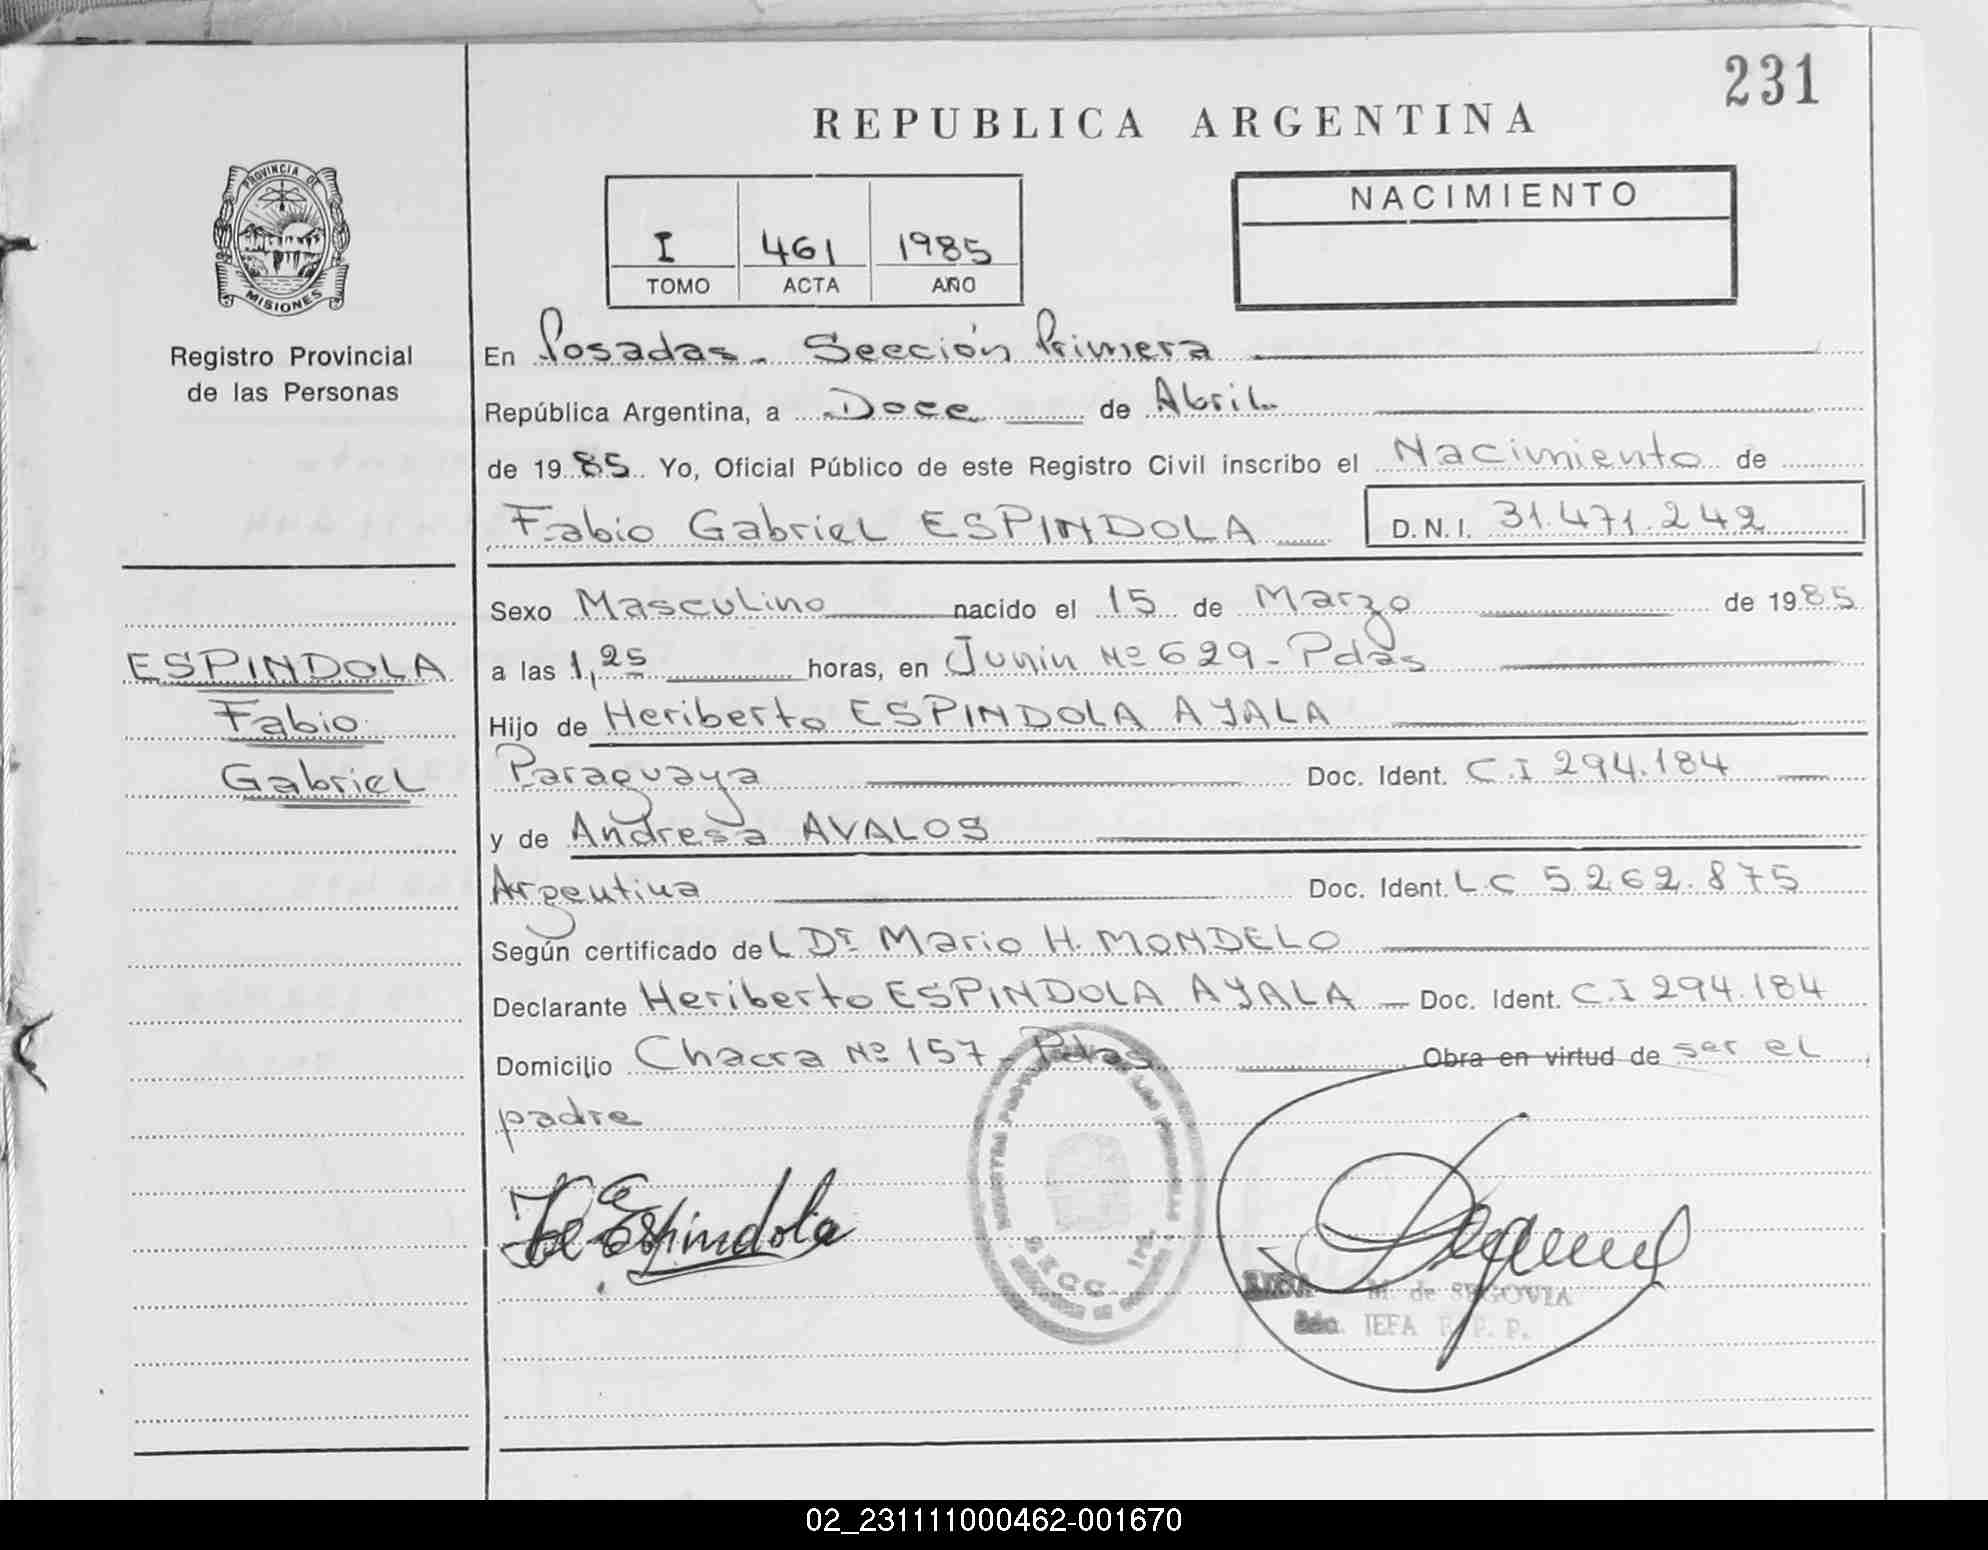 231
REPUBLICA ARGENTINA
PROVINCIA DE
MISIONES
Registro Provincial
de las Personas
I 461 1985
TOMO ACTA AÑO
NACIMIENTO
En Posadas. Sección Primera
República Argentina, a Doce de Abril
de 1985. Yo, Oficial Público de este Registro Civil inscribo el Nacimiento de
Fabio Gabriel ESPINDOLA D.N.I. 31.471.242
ESPINDOLA
Fabio
Gabriel
Sexo Masculino nacido el 15 de Marzo de 1985
a las 1,25 horas, en Junin Nº 629 - Pdas
Hijo de Heriberto ESPINDOLA AYALA
Paraguaya Doc. Ident. C.I 294.184
y de Andresa AVALOS
Argentina Doc. Ident. L.C 5.262.875
Según certificado del Dr. Mario H. MONDELO
Declarante Heriberto ESPINDOLA AYALA — Doc. Ident. C.I 294.184
Domicilio Chacra Nº 157 - Pdas Obra en virtud de ser el
padre
Espindola
SECC. 1ra.
M. de SEGOVIA
JEFA R. P. P.
02_231111000462-001670